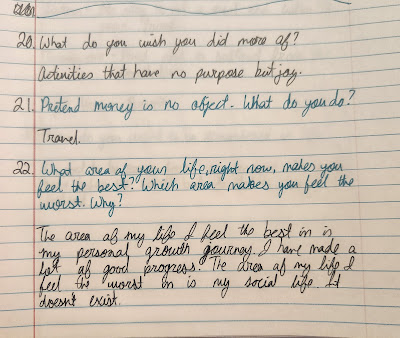 20. What do you wish you did more of?
Activities that have no purpose but joy.
21. Pretend money is no object. What do you do?
Travel.
22. What area of your life, right now, makes you
feel the best? Which area makes you feel the
worst. Why?
The area of my life I feel the best in is
my personal growth journey. I have made a
lot of good progress. The area of my life I
feel the worst in is my social life. It
doesn't exist.